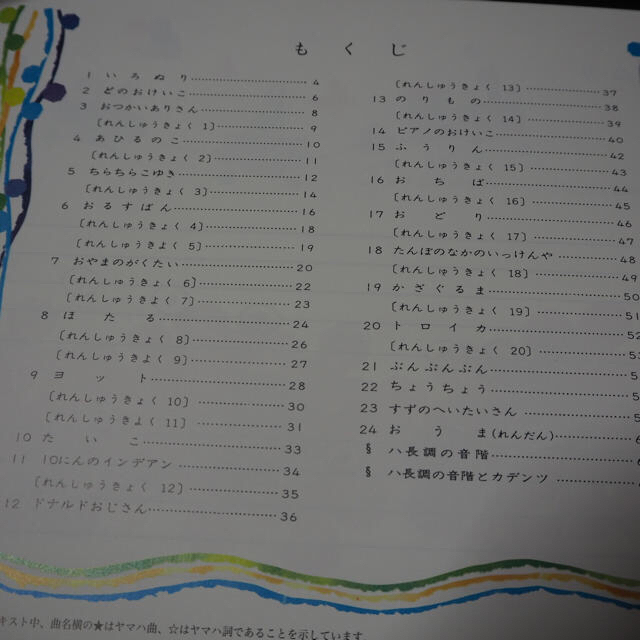 もくじ
1 いろぬり…………………………… 4
2 どのおけいこ…………………………… 6
3 おつかいありさん…………………………… 8
〔れんしゅうきょく 1〕…………………………… 9
4 あひるのこ……………………………10
〔れんしゅうきょく 2〕……………………………11
5 ちらちらこゆき……………………………12
〔れんしゅうきょく 3〕……………………………14
6 おるすばん……………………………16
〔れんしゅうきょく 4〕……………………………18
〔れんしゅうきょく 5〕……………………………19
7 おやまのがくたい……………………………20
〔れんしゅうきょく 6〕……………………………22
〔れんしゅうきょく 7〕……………………………23
8 ほたる……………………………24
〔れんしゅうきょく 8〕……………………………26
〔れんしゅうきょく 9〕……………………………27
9 ヨット……………………………28
〔れんしゅうきょく 10〕……………………………30
〔れんしゅうきょく 11〕……………………………31
10 たいこ……………………………33
11 10にんのインデアン……………………………34
〔れんしゅうきょく 12〕……………………………35
12 ドナルドおじさん……………………………36
〔れんしゅうきょく 13〕……………………………37
13 のりもの……………………………38
〔れんしゅうきょく 14〕……………………………39
14 ピアノのおけいこ……………………………40
15 ふうりん……………………………42
〔れんしゅうきょく 15〕……………………………43
16 おちば……………………………44
〔れんしゅうきょく 16〕……………………………45
17 おどり……………………………46
〔れんしゅうきょく 17〕……………………………47
18 たんぼのなかのいっけんや……………………………48
〔れんしゅうきょく 18〕……………………………49
19 かざぐるま……………………………50
〔れんしゅうきょく 19〕……………………………51
20 トロイカ……………………………52
〔れんしゅうきょく 20〕……………………………5
21 ぶんぶんぶん……………………………5
22 ちょうちょう……………………………5
23 すずのへいたいさん……………………………5
24 おうま(れんだん)……………………………6
§ ハ長調の音階……………………………
§ ハ長調の音階とカデンツ……………………………
キスト中、曲名横の★はヤマハ曲、☆はヤマハ詞であることを示しています。